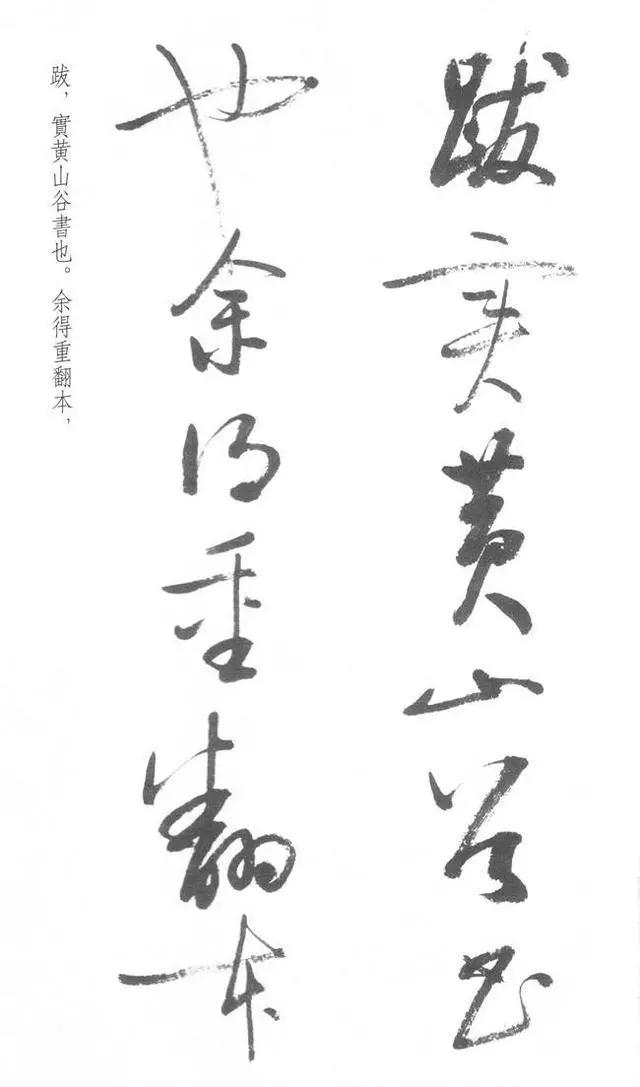 跋實黄山谷書
也余得重翻本
跋，實黄山谷書也。余得重翻本，